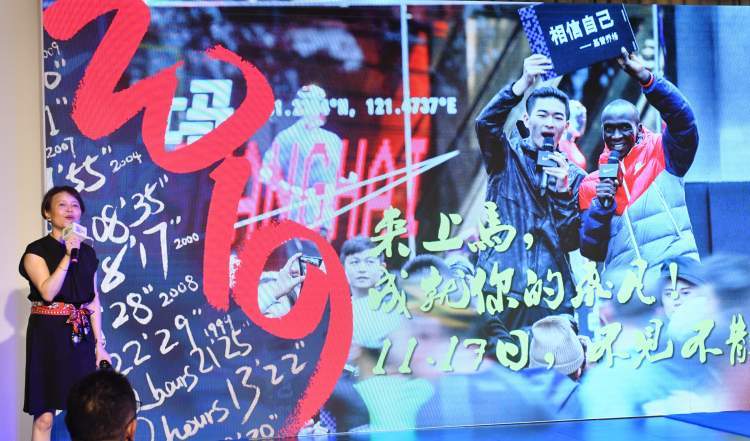 2019
2009
2007
55" 2004
08'35"
8'17" 2000
28" 2008
22'29" 1994
hours 21'25
hours 13'22"
°N, 121.4737°E
ANGHAI
相信自己
来上馬，
成就你的非凡！
11.17日，不見不散